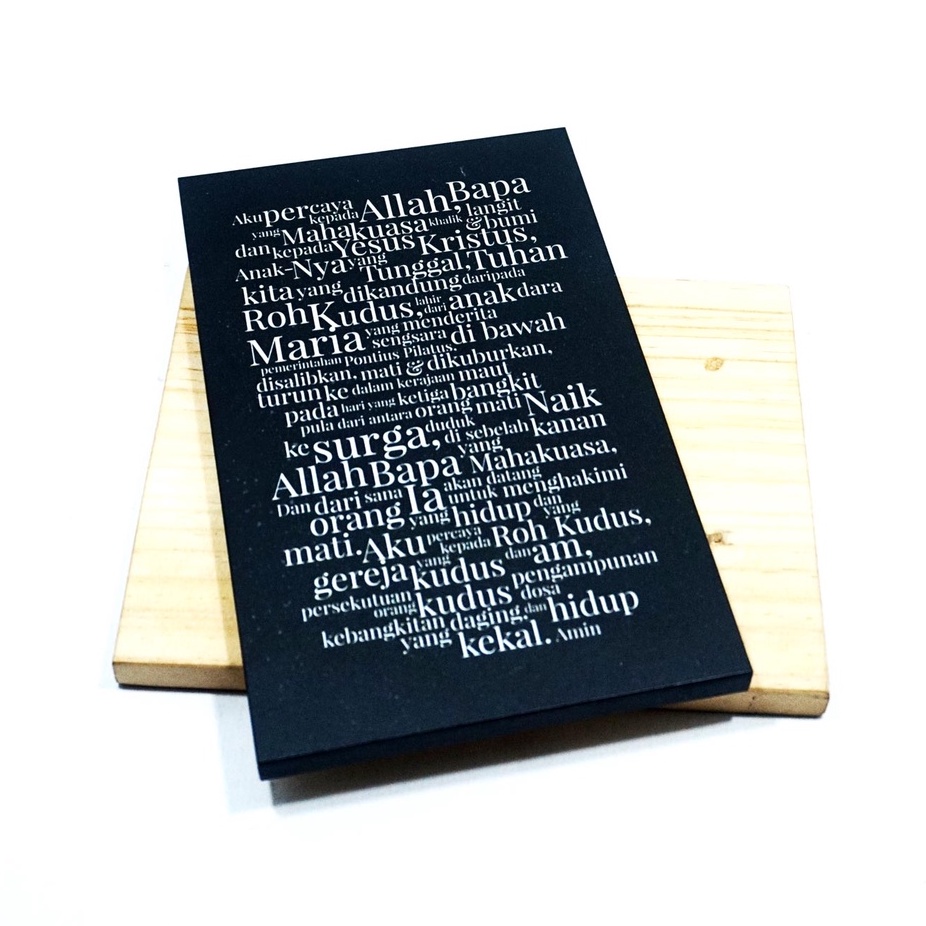 Aku percaya kepada Allah, Bapa
yang Mahakuasa khalik langit
& bumi
dan kepada Yesus Kristus,
Anak-Nya yang Tunggal, Tuhan
kita yang dikandung daripada
Roh Kudus, lahir dari anak dara
Maria yang menderita sengsara di bawah
pemerintahan Pontius Pilatus.
disalibkan. mati & dikuburkan,
turun ke dalam kerajaan maut
pada hari yang ketiga bangkit
pula dari antara orang mati Naik
ke surga, duduk di sebelah kanan
Allah Bapa yang Mahakuasa,
Dan dari sana Ia akan datang untuk menghakimi
orang yang hidup dan yang
mati. Aku percaya kepada Roh Kudus,
gereja yang kudus dan am,
persekutuan orang kudus pengampunan dosa
kebangkitan daging. dan hidup
yang kekal. Amin